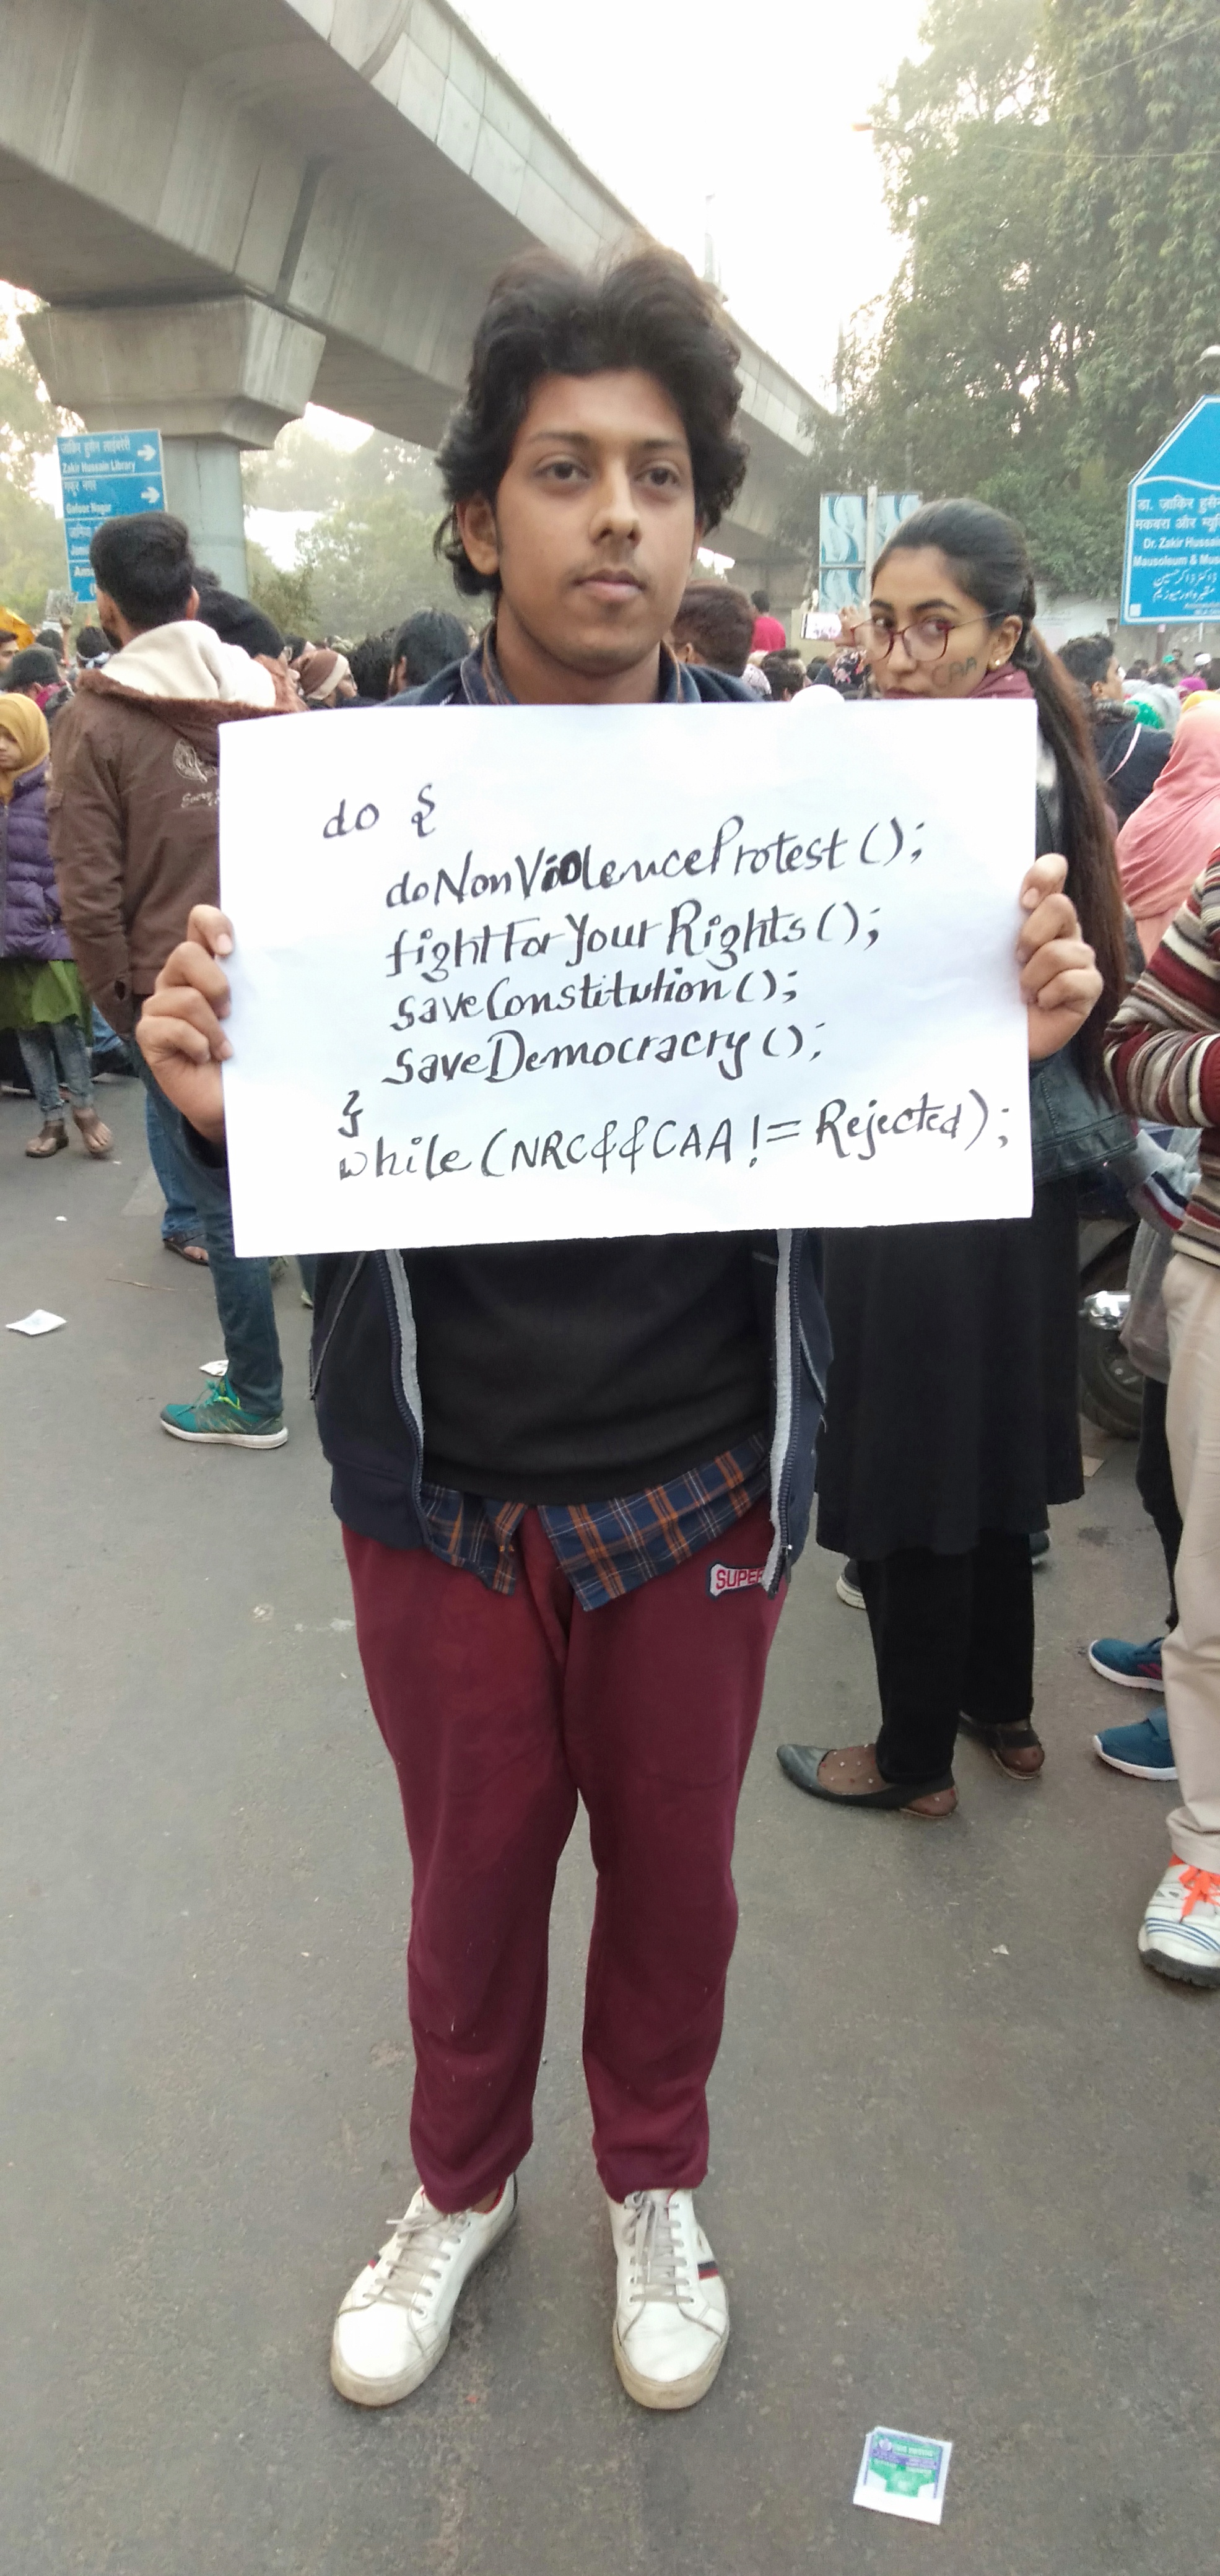 जाकिर हुसैन लाईब्रेरी
Zakir Hussain Library
गफूर नगर
Gafoor Nagar
डा. ज़ाकिर हुसैन
मकबरा और म्यू
Dr. Zakir Hussain
Mausoleum & Mus
CAA
do {
doNonViolenceProtest();
fightForYourRights();
saveConstitution();
saveDemocracry();
}
while (NRC&&CAA != Rejected);
SUPER